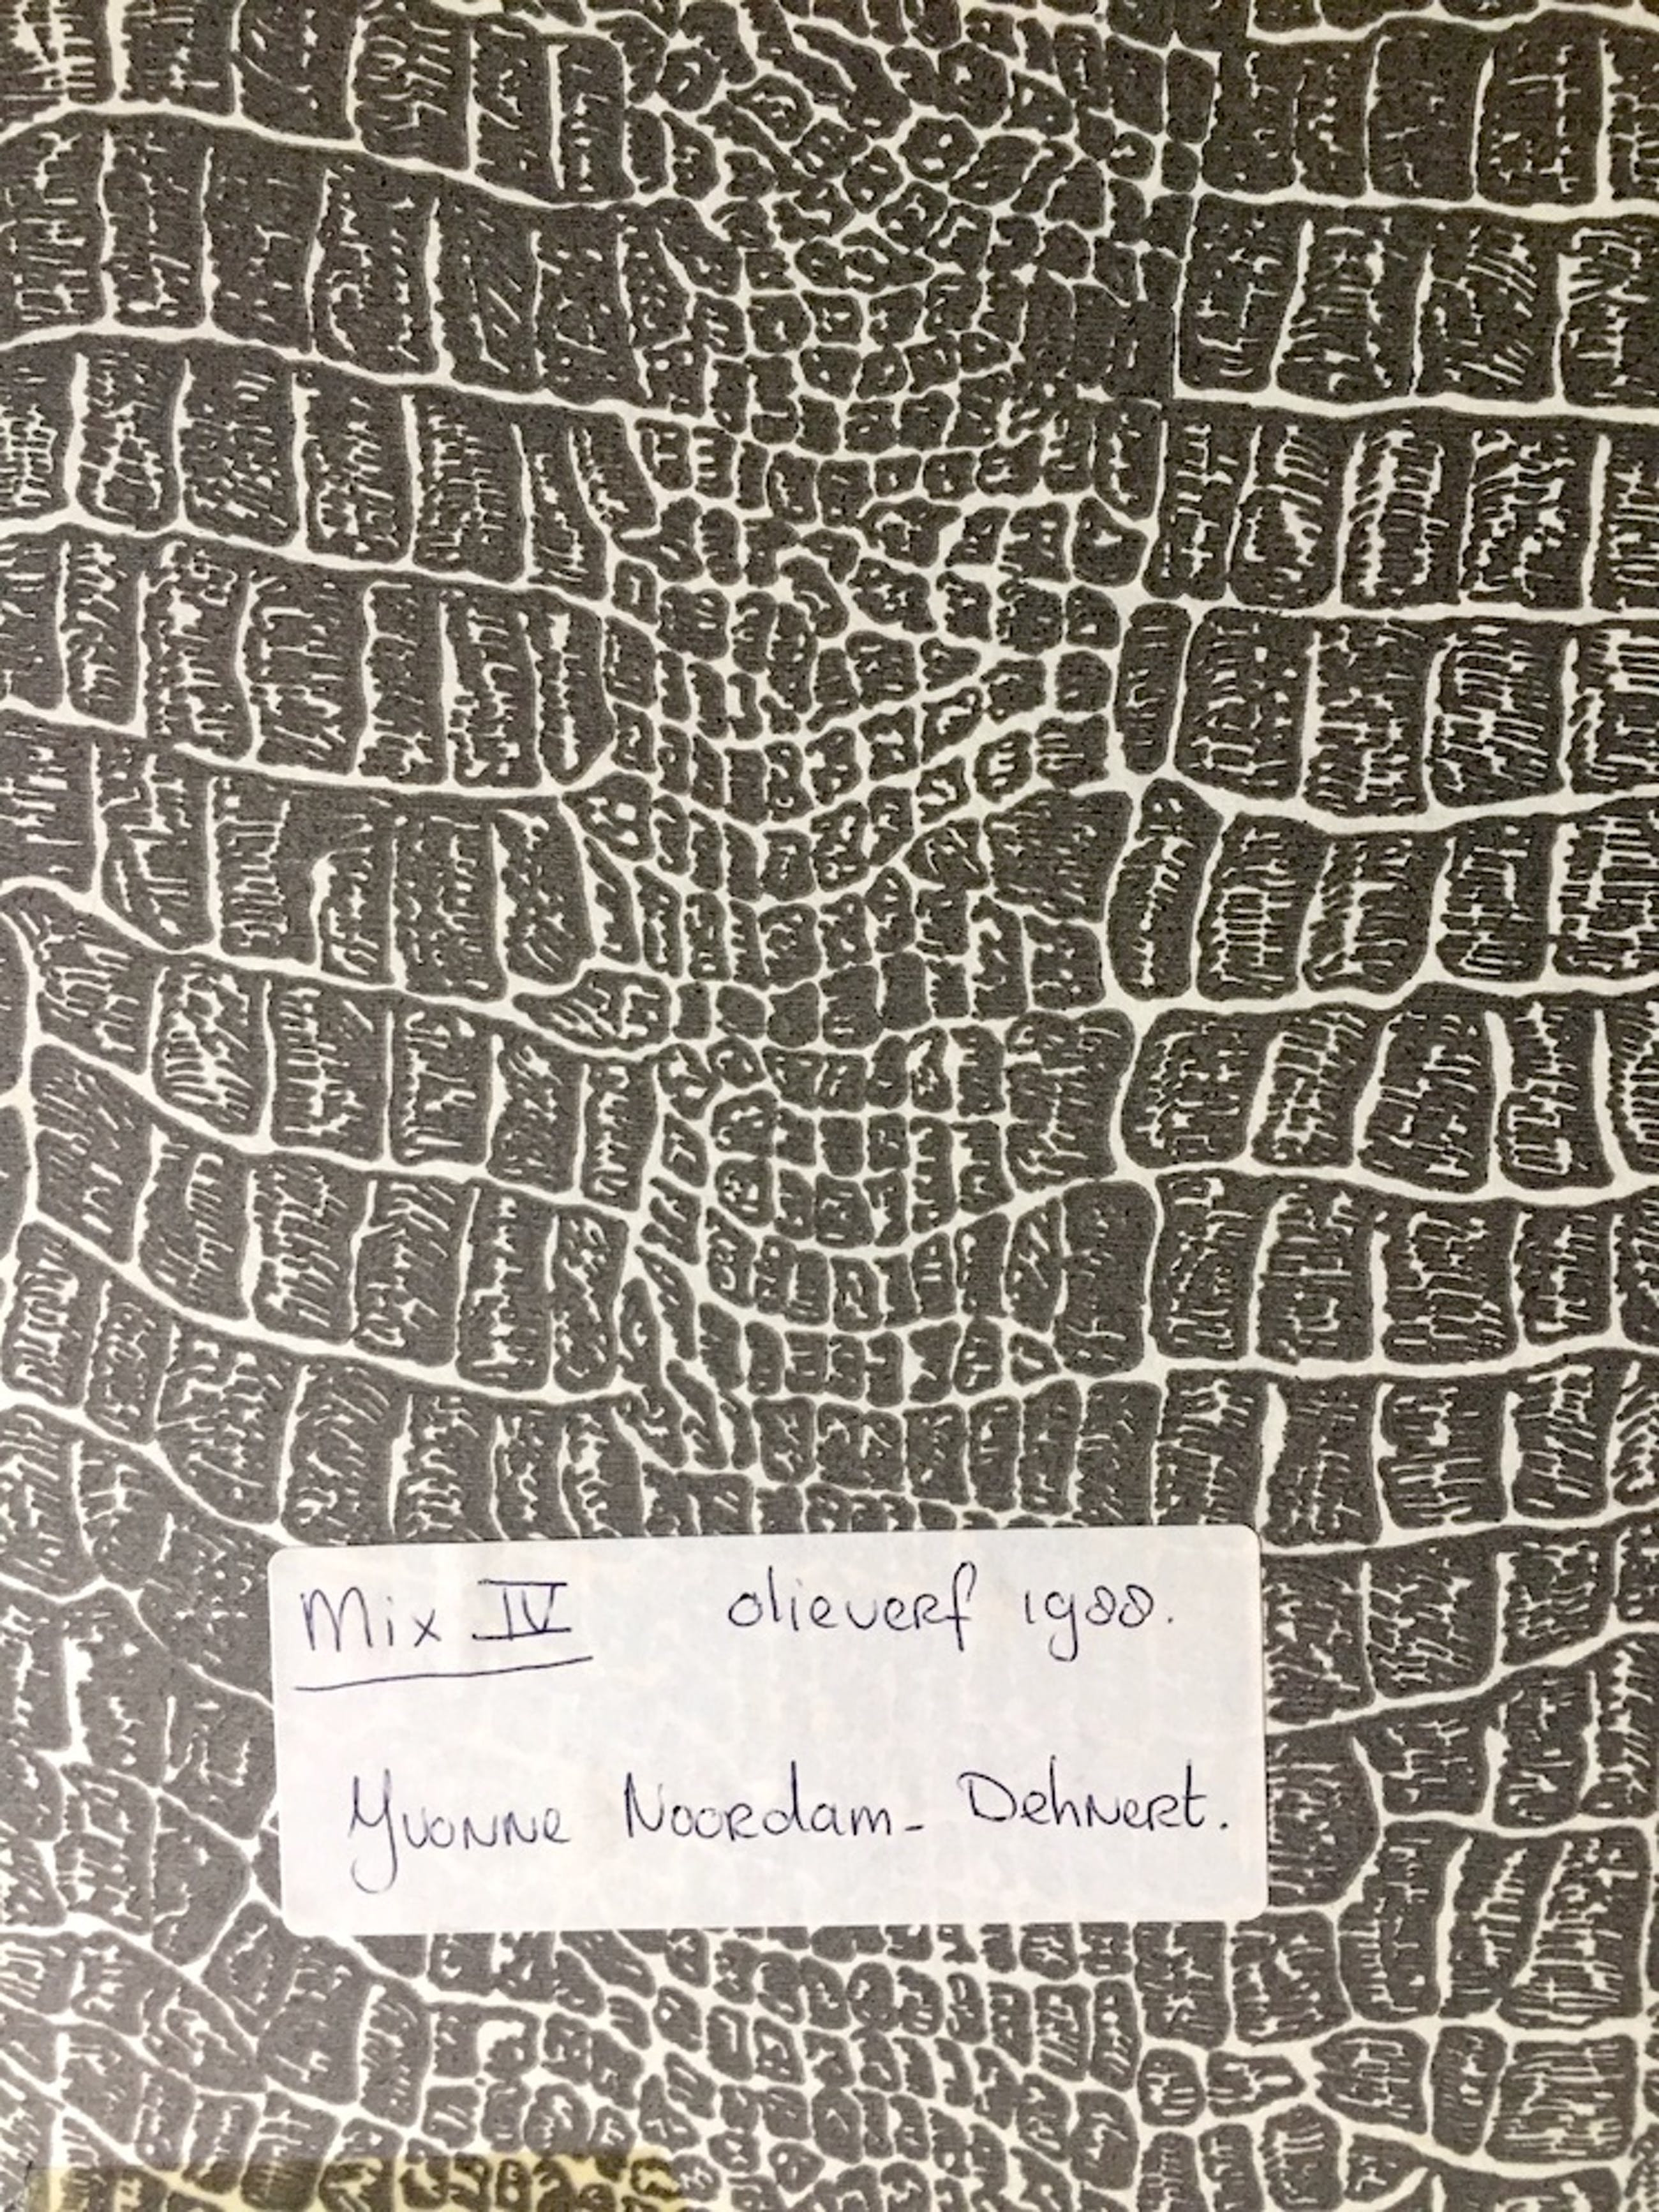 Mix IV olieverf 1988.
Yvonne Noordam - Dehnert.